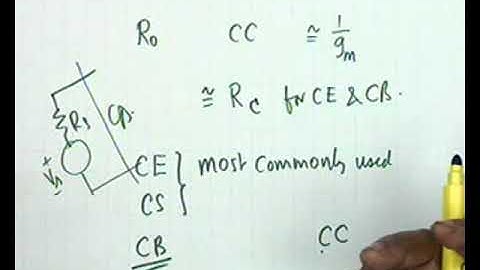 Ro CC ≅ 1/gm
≅ Rc for CE & CB.
Rs
+
Vs
-
CE } most commonly used
CS
CB CC